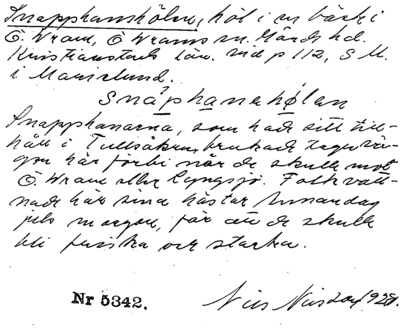 Snapphanehölen, höl i en bäck i
Ö. Vram, Ö. Vrams sn. Gärds hd.
Kristianstads län. vid p 112, S. M.
i Maurslund.
Snåphanehølan
Snapphanarna, som hade sitt till-
håll i Tullsåkra, brukade taga vä-
gen här förbi när de skulle mot
Ö. Vram eller Lyngsjö. Folk vatt-
nade här sina hästar Annandag
juls morgon, för att de skulle
bli friska och starka.
Nr 5342.
Nils 1928.